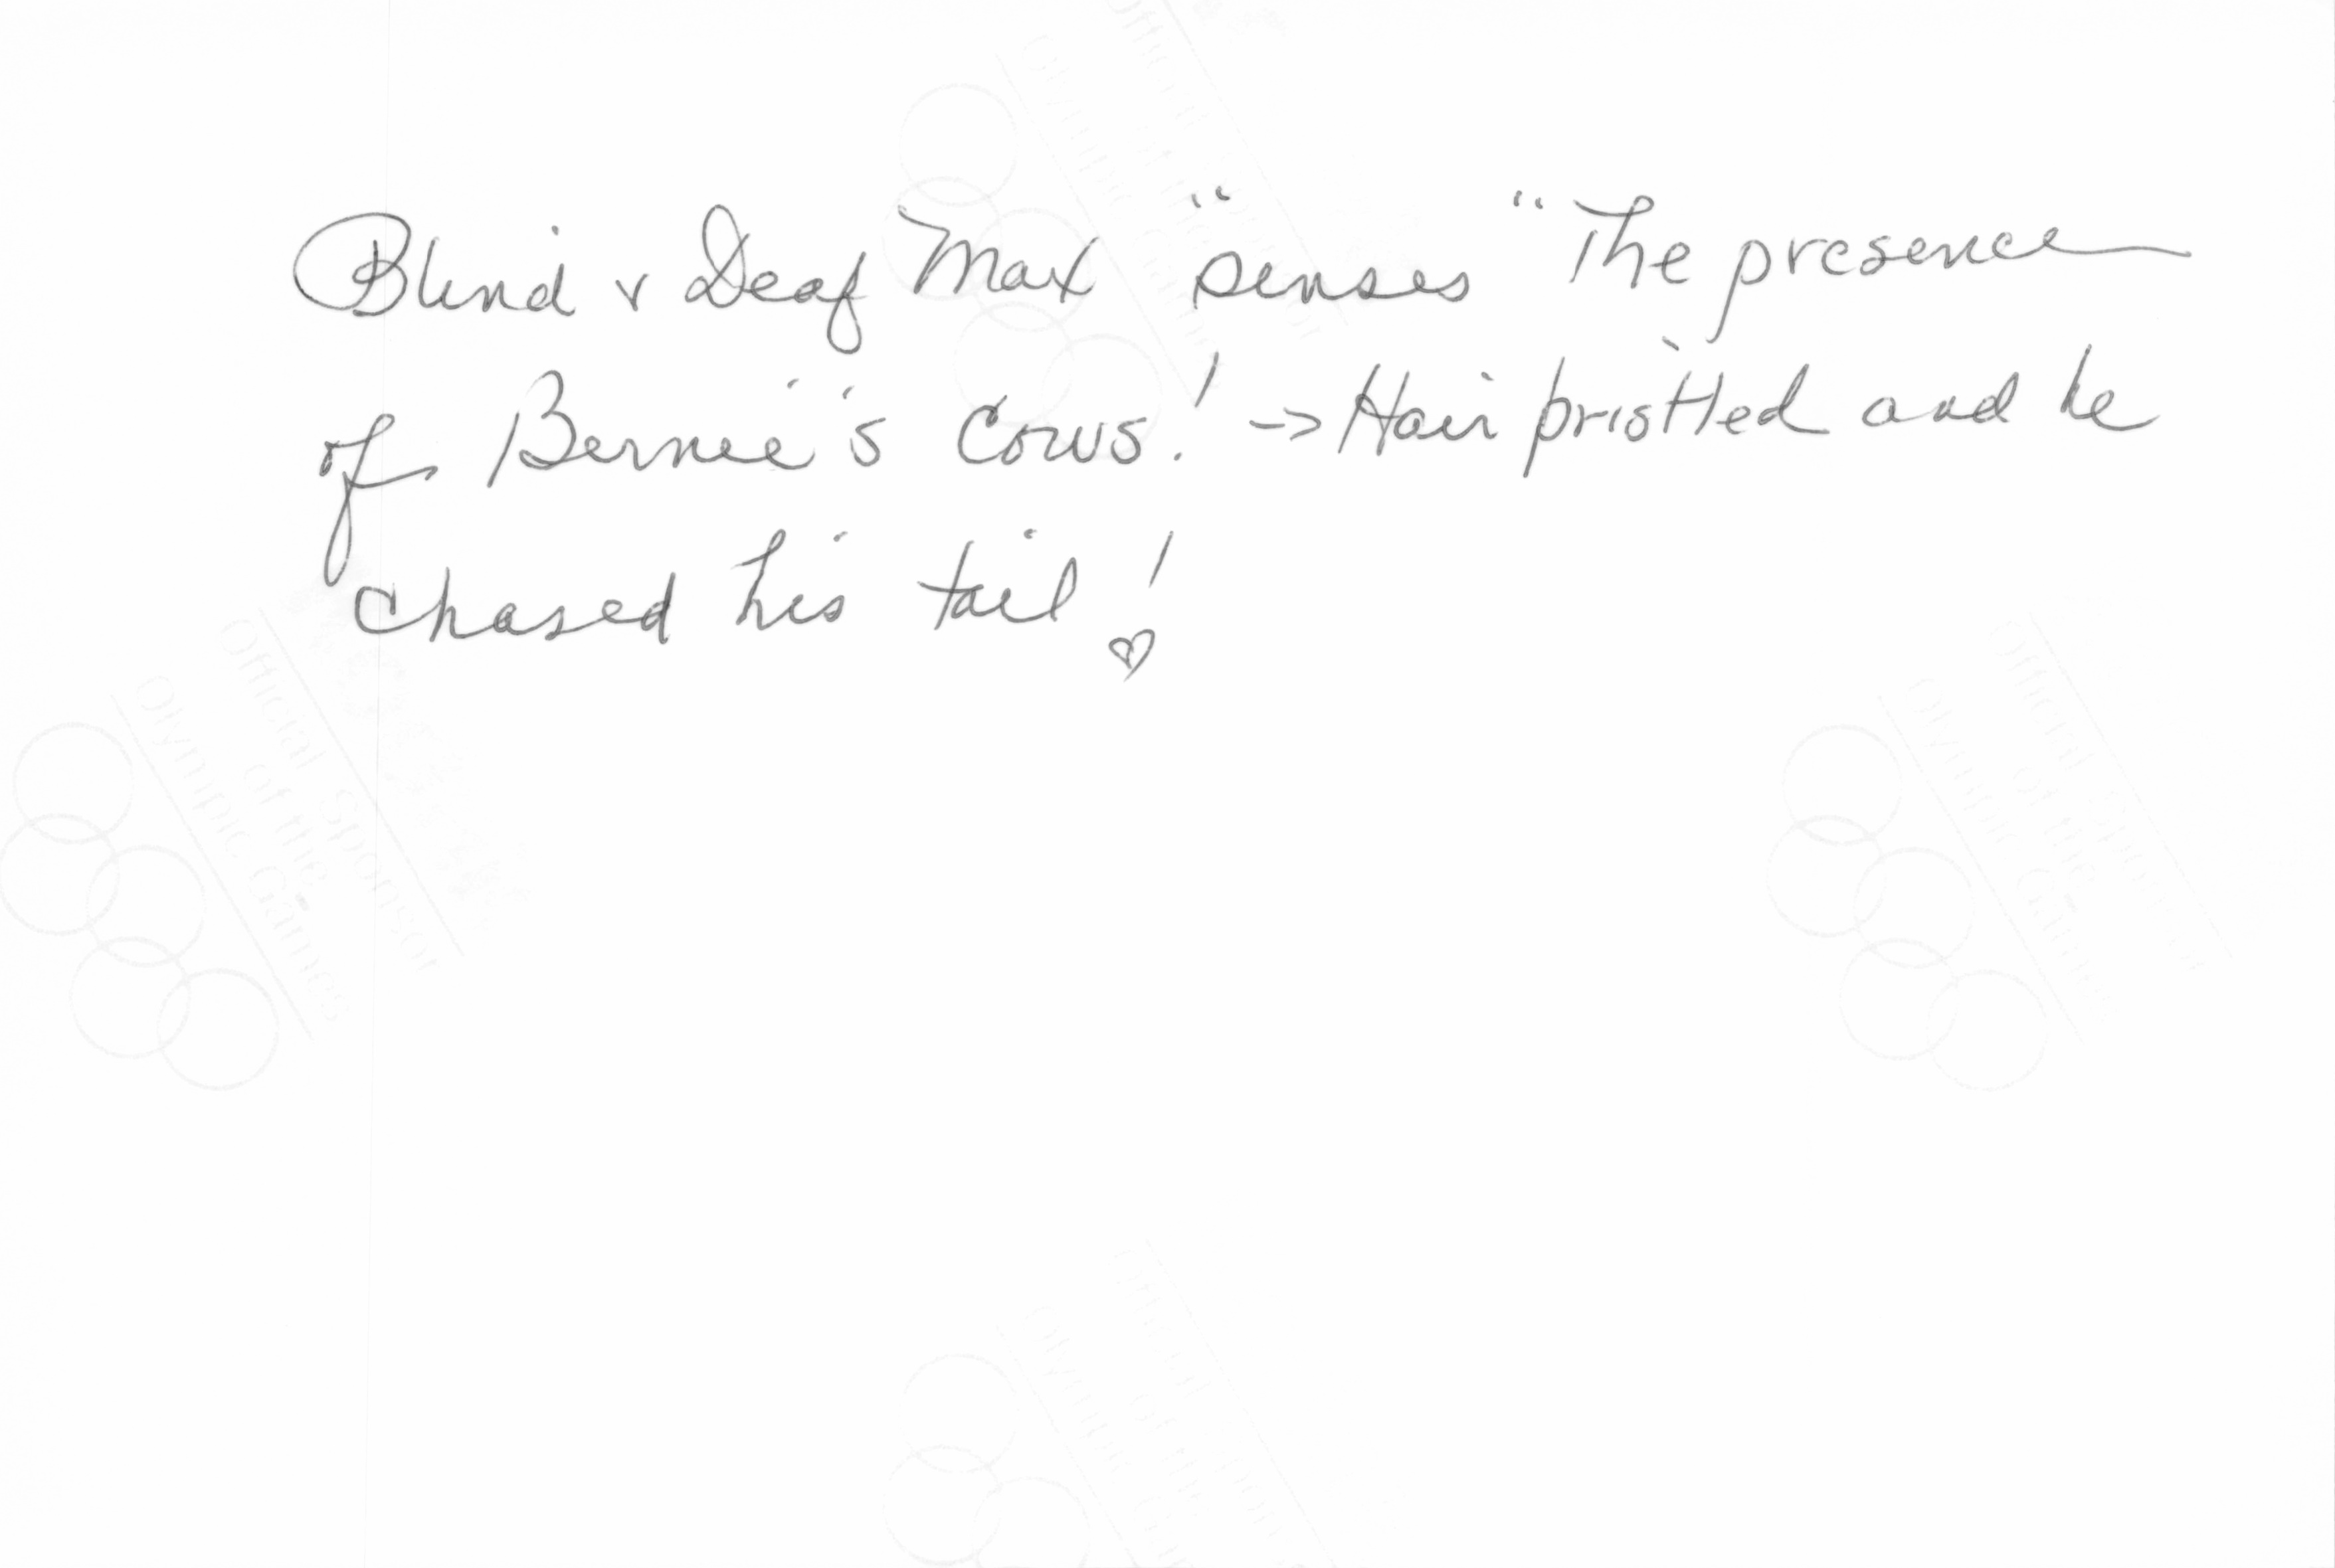 Blind & Deaf Max "senses" The presence
of Bernie's Cows! -> Hair pristled and he
chased his tail! ♡
Official Sponsor
of the
Olympic Games
Official Sponsor
of the
Olympic Games